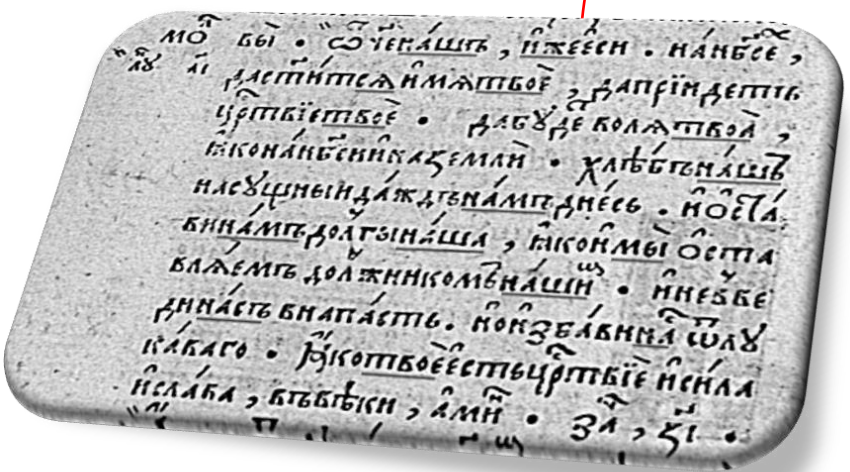 мо бы · Ѿч҃енашъ, ижеєси · нанб҃се,
лꙋ аі даститсѧимѧтвоѐ, дапрїидетъ
цр҃твїетвоѐ · дабꙋде волѧтвоѧ̀,
ꙗконанб҃синиказемли̑ · хлѣбънашъ
насꙋщныидаждьнамъднесь · иоста
винамъдолгынаша, ꙗкоимы̀ оста
влѧемъ должникомънаши · иневве
динасъвнапасть. ноизбавина ѿлꙋ
каваго · Ꙗкотвоѐестьцр҃твїѐ исила
ислава, въвѣки, ами · за, зі ·